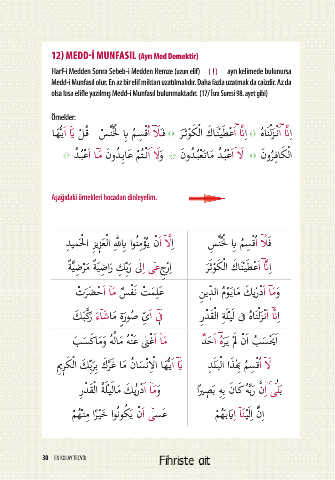 12) MEDD-İ MUNFASIL (Ayrı Med Demektir)
Harf-i Medden Sonra Sebeb-i Medden Hemze (uzun elif) ( أ ) ayrı kelimede bulunursa
Medd-i Munfasıl olur. En az bir elif miktarı uzatılmalıdır. Daha fazla uzatmak da caizdir. Az da
olsa bazı elifle yazılmış Medd-i Munfasıl bulunmaktadır. (17/ İsra Suresi 98. ayet gibi)
Örnekler:
اِنَّٓا اَنْزَلْنَاهُ اِنَّٓا اَعْطَيْنَاكَ الْكَوْثَرَ فَلَٓا اُقْسِمُ بِالْخُنَّسِ قُلْ يَٓا اَيُّهَا
الْكَافِرُونَ لَٓا اَعْبُدُ مَا تَعْبُدُونَ وَلَٓا اَنْتُمْ عَابِدُونَ مَٓا اَعْبُدُ
Aşağıdaki örnekleri hocadan dinleyelim.
فَلَٓا اُقْسِمُ بِالْخُنَّسِ اِلَّٓا اَنْ يُؤْمِنُوا بِاللّٰهِ الْعَزِيزِ الْحَمِيدِ
اِنَّٓا اَعْطَيْنَاكَ الْكَوْثَرَ اِرْجِعِٓى اِلٰى رَبِّكِ رَاضِيَةً مَرْضِيَّةً
وَمَٓا اَدْرٰيكَ مَا يَوْمُ الدِّينِ عَلِمَتْ نَفْسٌ مَٓا اَحْضَرَتْ
اِنَّٓا اَنْزَلْنَاهُ فِى لَيْلَةِ الْقَدْرِ فِٓى اَىِّ صُورَةٍ مَا شَٓاءَ رَكَّبَكَ
اَيَحْسَبُ اَنْ لَمْ يَرَهُٓ اَحَدٌ مَٓا اَغْنٰى عَنْهُ مَالُهُ وَمَا كَسَبَ
لَٓا اُقْسِمُ بِهٰذَا الْبَلَدِ يَٓا اَيُّهَا الْاِنْسَانُ مَا غَرَّكَ بِرَبِّكَ الْكَرِيمِ
بَلٰٓى اِنَّ رَبَّهُ كَانَ بِهِ بَصِيرًا وَمَٓا اَدْرٰيكَ مَا لَيْلَةُ الْقَدْرِ
اِنَّ اِلَيْنَٓا اِيَابَهُمْ عَسٰٓى اَنْ يَكُونُوا خَيْرًا مِنْهُمْ
30 EN KOLAY TECVİD
Fihriste git